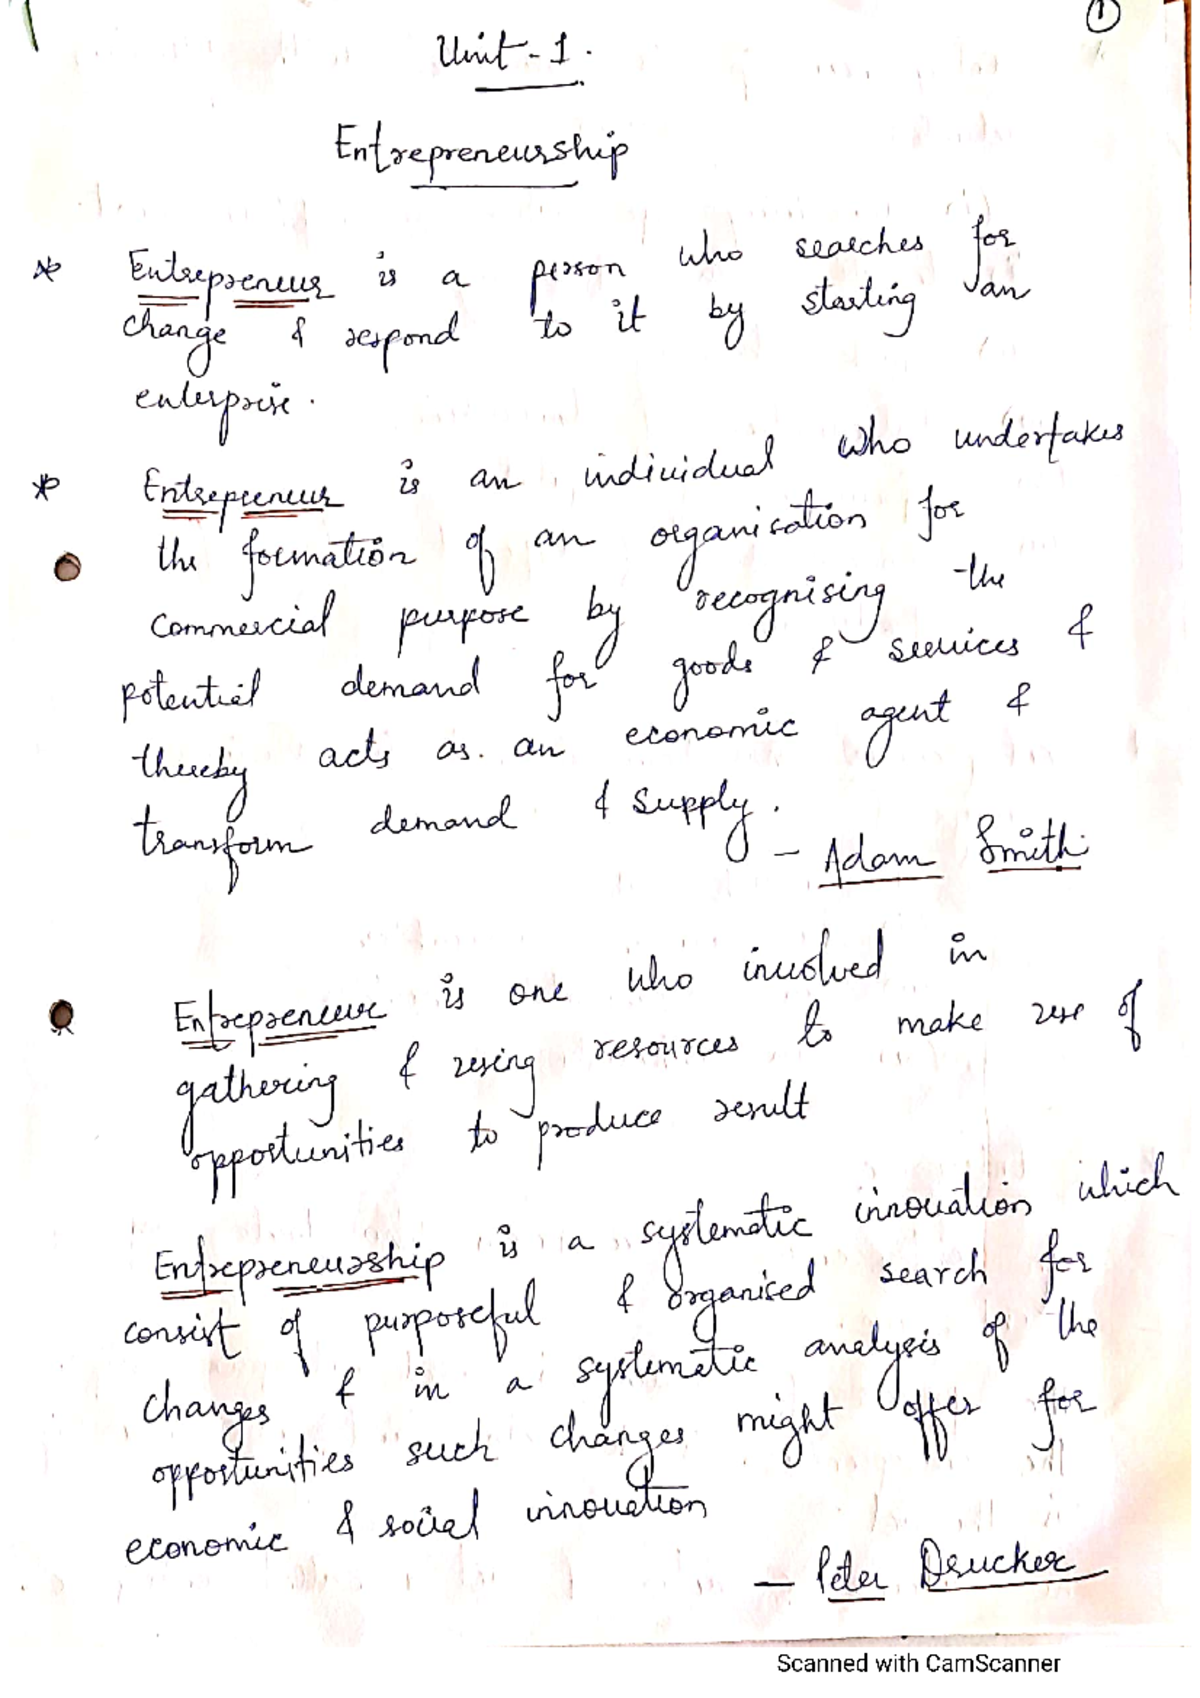 ①
Unit - 1.
Entrepreneurship
* Entrepreneur is a person who searches for
change & respond to it by starting an
enterprise.
* Entrepreneur is an individual who undertakes
the formation of an organisation for
commercial purpose by recognising the
potential demand for goods & services &
thereby acts as. an economic agent &
transform demand & supply.
- Adam Smith
Entrepreneur is one who involved in
gathering & using resources to make use of
opportunities to produce result
Entrepreneurship is a systematic innovation which
consist of purposeful & organised search for
changes & in a systematic analysis of the
opportunities such changes might offer for
economic & social innovation
- Peter Drucker
Scanned with CamScanner